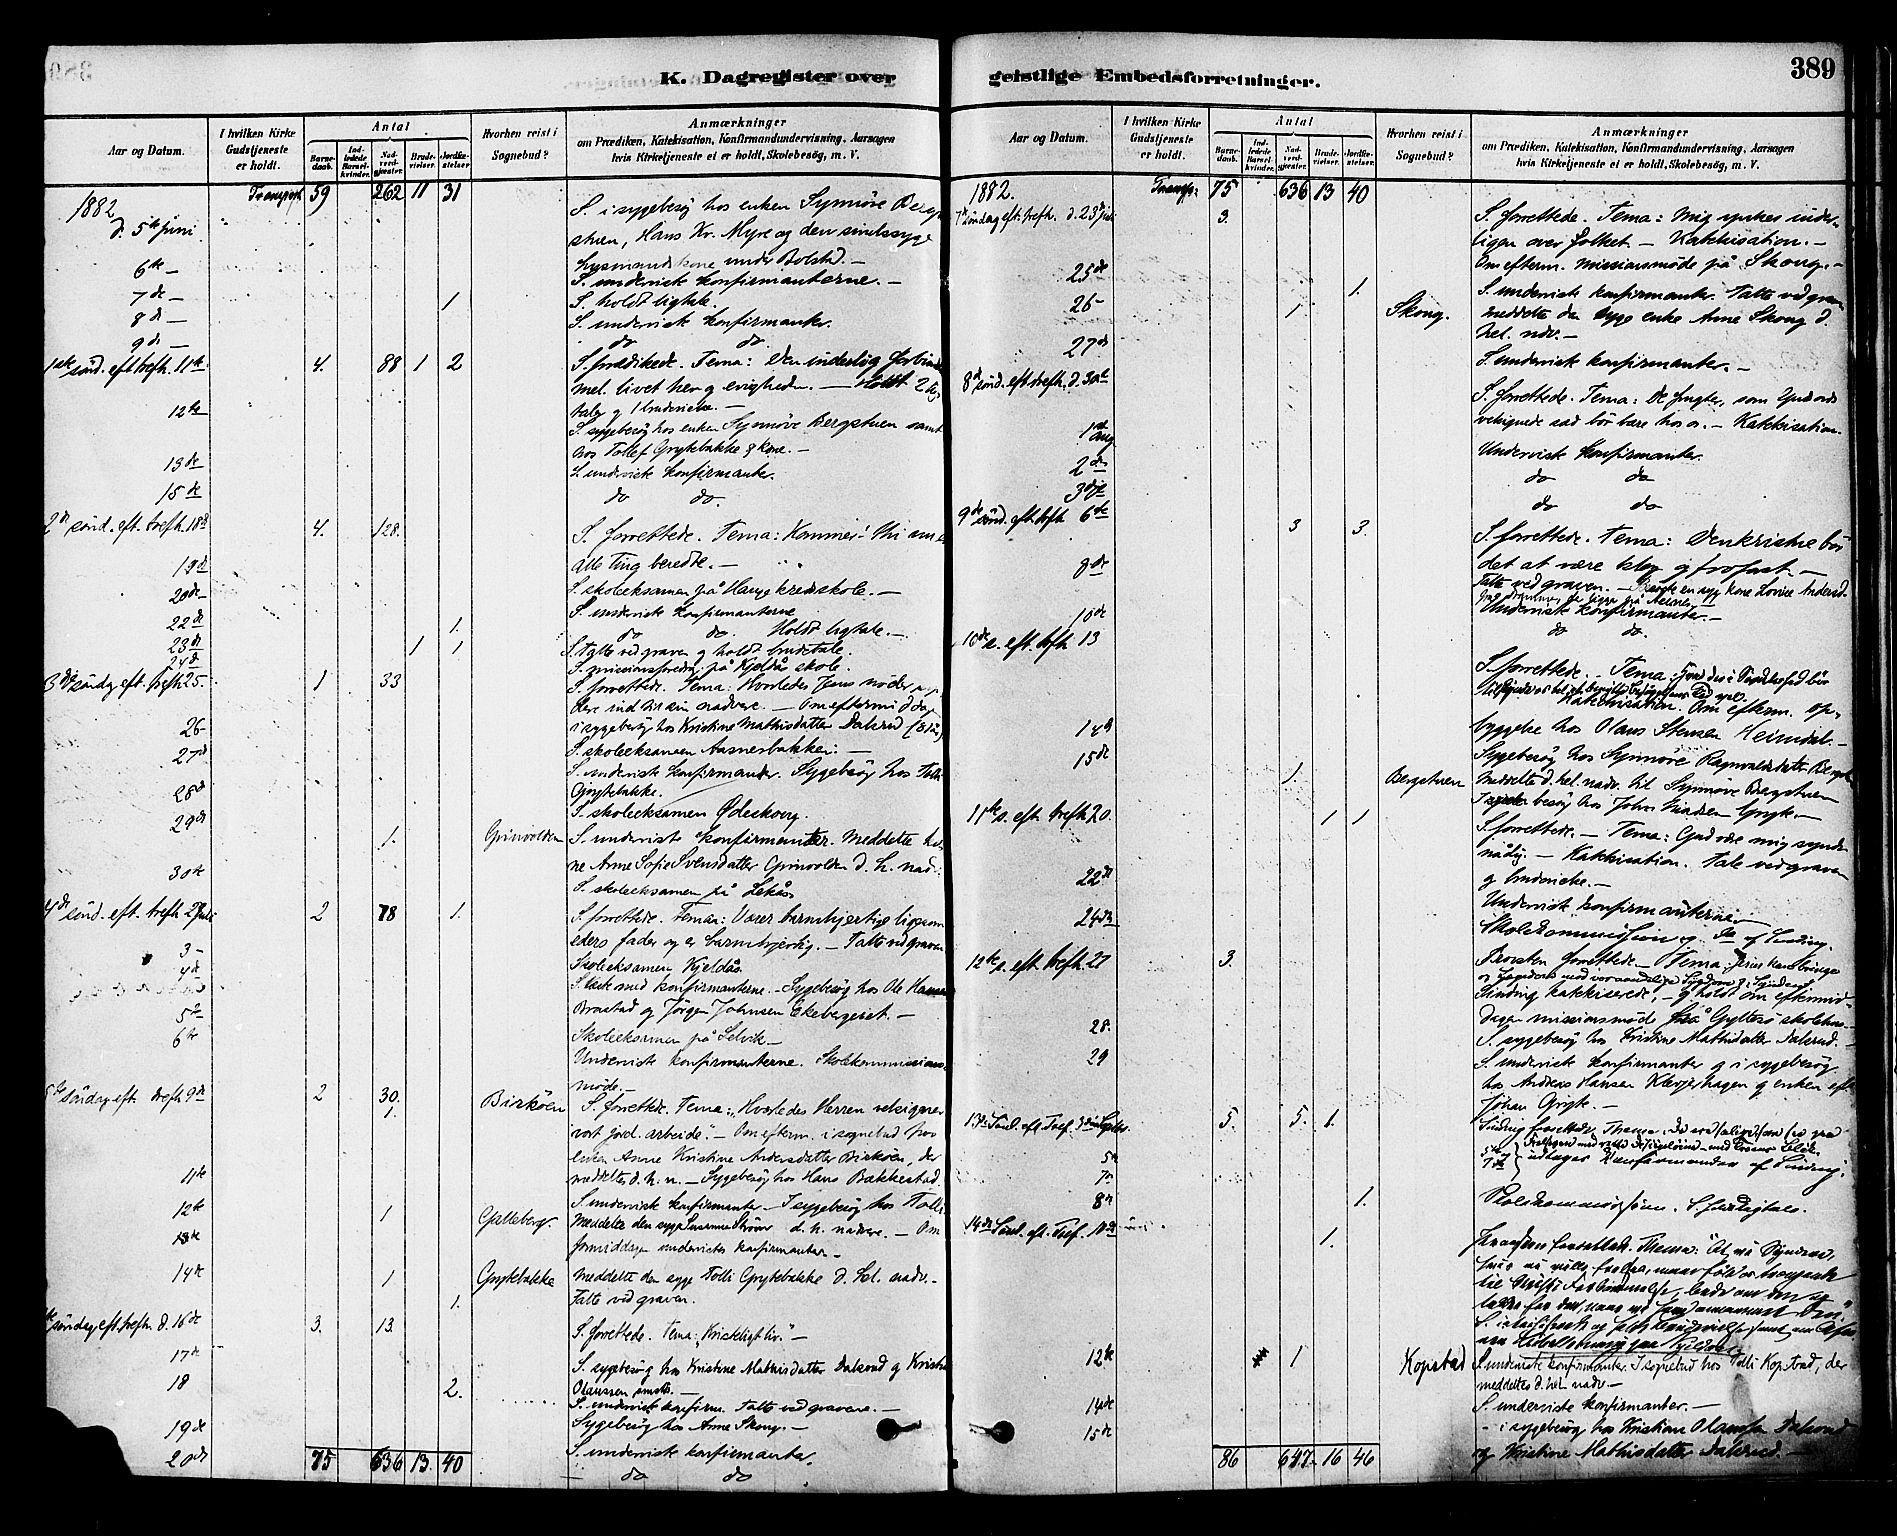 K. Dagregister over
Aar og Datum.
I hvilken Kirke Gudstjeneste er holdt.
Antal
Barnedaab.
Indledede Barselkvinder.
Nadverdgjæster.
Brudevielser.
Jordfæstelser.
Hvorhen reist i Sognebud?
Anmærkninger
om Prædiken, Katekisation, Konfirmandundervisning, Aarsagen
hvis Kirketjeneste ei er holdt, Skolebesøg, m. V.
1882 Transport 59 262 11 31
d. 5te juni S. i sygebesøg hos enken Synnöve Berg
stuen, Hans Kr. Myre og den sindssyge
husmandskone under Bolstad. —
6te — S. undervist konfirmanterne. —
7de — 1 S. holdt ligtale.
8de — S. undervist konfirmanter.
9de — do do
1ste sönd. eft. trefh. 11te 4. 88 1 2 S. prædikede. Tema: Den inderlige
mel. livet her og evigheden. — Holdt 2
taler og 1 brudevielse. —
12te S. sygebesøg hos enken Synnöve Bergstuen samt
hos Tollef Grytebakke & kone. —
13de S. undervist konfirmanter.
15de do do.
2den sönd. eft. trefh. 18de 4. 128. S. forrettede. Tema: Kommer! Thi nu er
alle Ting beredte. —
19de S. skoleeksamen på Hauge kredsskole. —
20de S. undervist konfirmanterne
22de 1. do do. Holdt ligtale. —
23de 1 1 S. talte ved graven og holdt brudetale.
24de S. missionsforedrag på Kjeldås skole.
3die söndag eft. trefh. 25. 1 33 S. forrettede. Tema: Hvorledes Jesus nöder
dere ind til sin nadvere. — Om eftermiddag
i sygebesøg hos Kristine Mathisdatter Dalsrud
26 — S. skoleeksamen Aasnesbakken. —
27de S. undervist konfirmander. Sygebesøg hos Tolli
Grytebakke.
28de S. skoleeksamen Ödeskoug.
29de 1. Grinvolden S. undervist konfirmanter. Meddelte
Anne Sofie Svensdatter Grinvolden d. h. nad.
30te S. skoleeksamen på Lekås
4de sönd. eft. trefh. 2 Juli 2 78 1. S. forrettede. Temaa: Værer barmhjertige ligesom
eders fader og er barmhjertig. — Talte ved graven
3 — Skoleeksamen Kjeldås.
4de S. läste med konfirmanterne. — Sygebesøg hos Ole Hansen
Brastad og Jörgen Johnsen Ekebergeret. —
5te Skoleeksamen på Selvik —
6te Undervist konfirmanterne. Skolekommissions-
möde. —
5te söndag eft. trefh. 9de 2 30. 1. Birköen S. forrettede. Tema: „Hvorledes Herren velsigner
vort jord. arbeide.“ — Om efterm. i sognebud hos
enken Anne Kristine Andersdatter Birköen, der
meddeltes d. h. n. — Sygebesøg hos Hans Bakkestad.
11te S. undervist konfirmanter — I sygebesøg hos Tolli
12te 1 Galleberg. Meddelte den syge Susanne Ström d. h. nadvere. — Om
13de formiddagen undervistes konfirmanter —
14de 1 Grytebakke Meddelte den syge Tolli Grytebakke d. hel. nadv. —
1. Talte ved graven.
söndag eft. trefh. d. 16de 3. 13. S. forrettede. Tema: „Kristeligt liv.“ —
17de S. sygebesøg hos Kristine Mathisdatter Dalsrud og Kristian
Olaussen smsts. —
18 2. S. undervist konfirm. Talte ved gravene. —
19de Sygebesøg hos Anne Skoug. —
20de S. undervist konfirmanter.
75 636 13. 40 — do do
geistlige Embedsforretninger. 389
Aar og Datum.
I hvilken Kirke Gudstjeneste er holdt.
Antal
Barnedaab.
Indledede Barselkvinder.
Nadverdgjæster.
Brudevielser.
Jordfæstelser.
Hvorhen reist i Sognebud?
Anmærkninger
om Prædiken, Katekisation, Konfirmandundervisning, Aarsagen
hvis Kirketjeneste ei er holdt, Skolebesøg, m. V.
1882. Transp. 75 636 13 40
7de söndag eft. trefh. d. 23de juli 3. S. forrettede. Tema: Mig ynkes inder-
ligen over folket — Katekisation. —
Om efterm. missionsmøde på Skoug. —
25de 1. S. undervist konfirmanter. Talte ved graven
26 — 1 Skoug. meddelte den syge enke Anne Skoug d.
hel. ndv. —
27de S. undervist konfirmanter. —
8de sönd. eft. trefh. d. 30te S. forrettede. Tema: De frugter, som Guds ords
velsignede sæd bör bære hos os. — Katekisation.
1ste aug Undervist konfirmanter.
2den do do
3die do do
9de sönd. eft. trefh. 6te 3 3. S. forrettede. Tema: Den kristne bör
det at være klog og trofast. —
Talte ved graven. —
8de Undervist konfirmanter. —
10de do do.
10de s. eft. trefh. 13 S. forrettede. — Tema:
Katekisation. Om efterm. op-
byggelse hos Olaus Stensen Heimdal. —
14de Sygebesøg hos Synnöve
15de 1. Bergstuen Meddelte d. hel. nadv. til Synnöve Bergstuen
I sygebesøg hos Johs Madsen Gryte. —
11te s. eft. trefh. 20. 1 1 S. forrettede. — Tema: Gud vær mig synder
nådig. — Katekisation. Tale ved graven
og brudevielse. —
22de Undervist konfirmanterne. —
24de Skolekommission og do af Sinding.
12te s. eft. trefh. 27 3. Provsten forrettede. — Tema:
Sinding katekiserede, — og holdt om eftermid-
dagen missionsmøde på skolehus. —
28. S. sygebesøg hos Kristine Mathisdatter Dalsrud. —
29 S. undervist konfirmanter og i sygebesøg
hos Andreas Hansen Klevjerhagen og enken eft.
Johan Gryte. —
13de Sönd. ef. Tref. 3die Septbr. 5. 5. 1. Sinding forrettede. Thema:
5te
7de konfirmander af Sinding.
8de 1. Skolekommission. S. holdt ligtale.
14de Sönd. ef. Tref. 10de 1. Provsten forrettede. Thema: „At vi Syndere,
12te 1 Kopstad S. underviste konfirmanter. I sognebud hos Tolli Kopstad, der
meddeltes d. hel. nadv. —
14de S. underviste konfirmanter. —
15de — i sygebesøg hos Kristian Olausen Dalsrud
86 647 16 46 og Kristine Mathisdatter Dalsrud. —